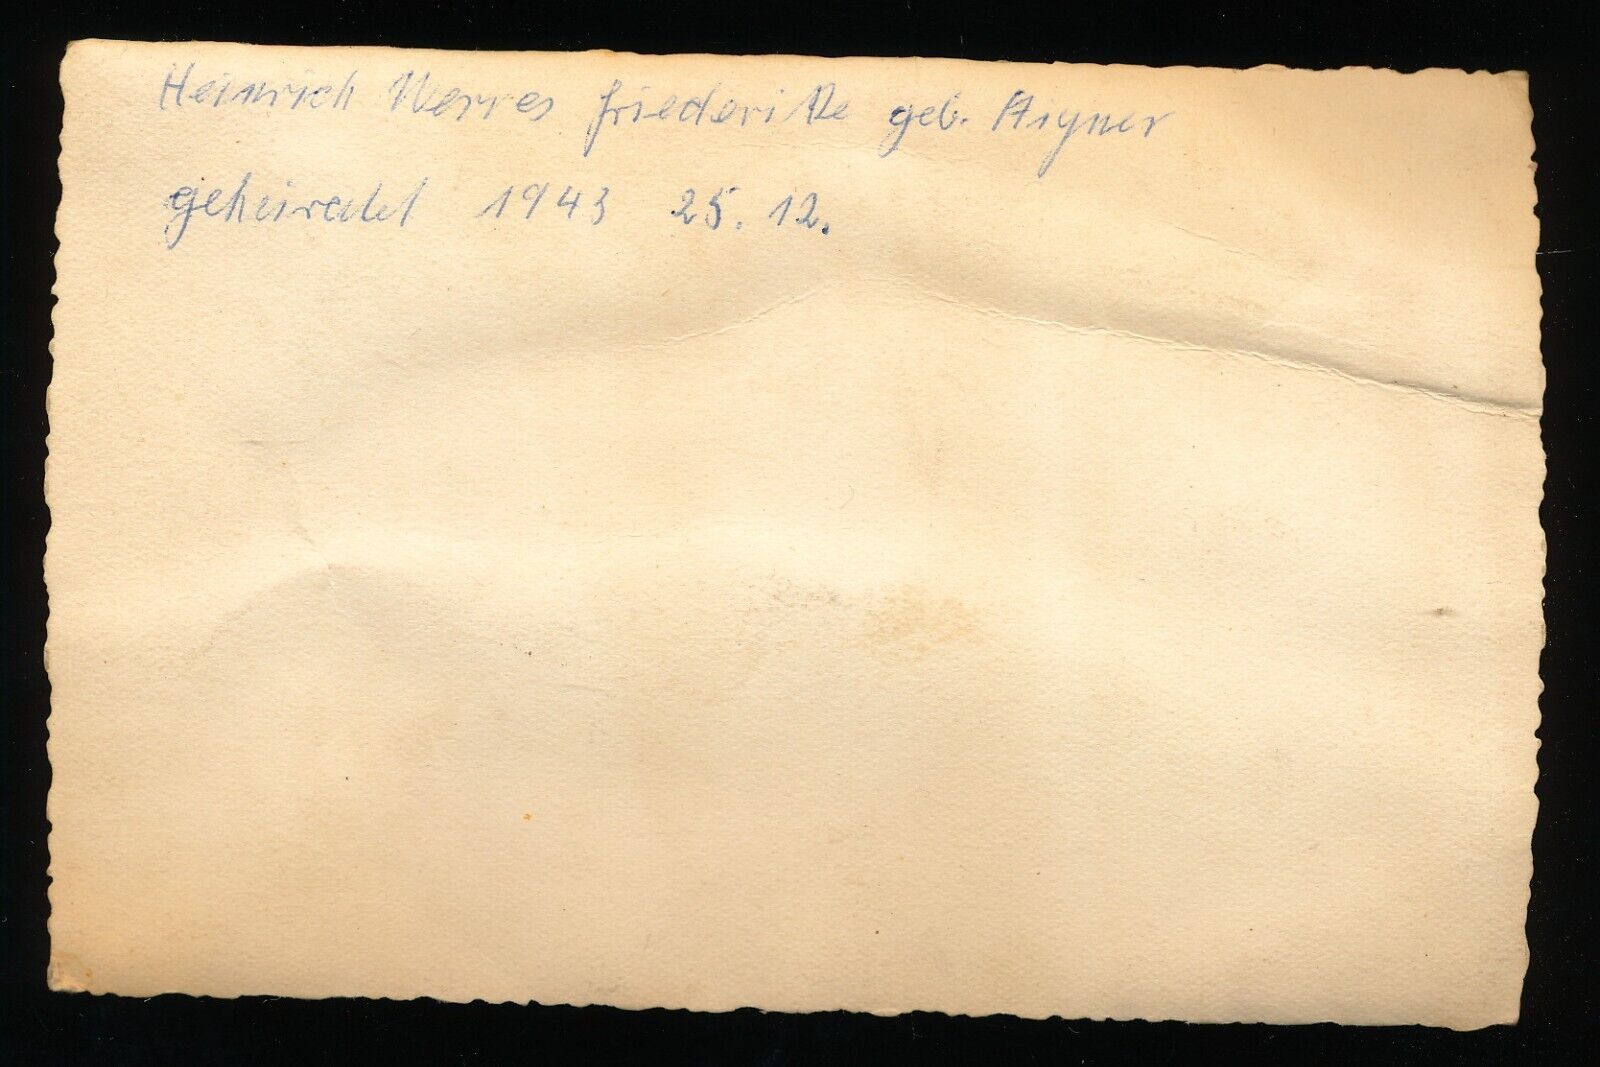 Heinrich Werres Friederike geb. Aigner
geheiratet 1943 25. 12.